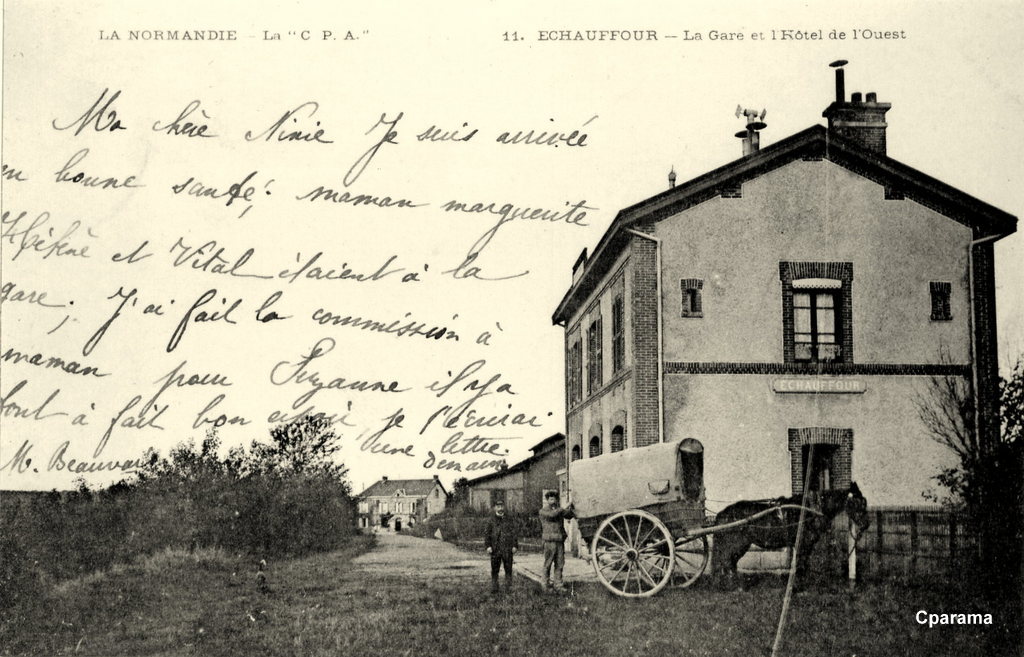 LA NORMANDIE - La "C P. A."
11. ECHAUFFOUR — La Gare et l'Hôtel de l'Ouest
Ma chère Ninie Je suis arrivée
en bonne santé; maman marguerite
Hélène et Vital étaient à la
gare; J'ai fait la commission à
maman pour Suzanne il y a
tout à fait bon je t'enverrai
une lettre
demain
M. Beauvais
ECHAUFFOUR
Cparama